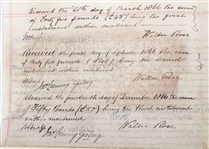 Received the 20th day of March 1866 the sum
of Forty five pounds (£45) being the first
instalment within mentioned
Witness Walter Rose
Received the first day of September 1866 the sum
of pounds being the Second
instalment within mentioned
Walter Rose
Received the day of December 1866 the sum
of Fifty Pounds (£50) being the third instalment
within mentioned
Witness Walter Rose